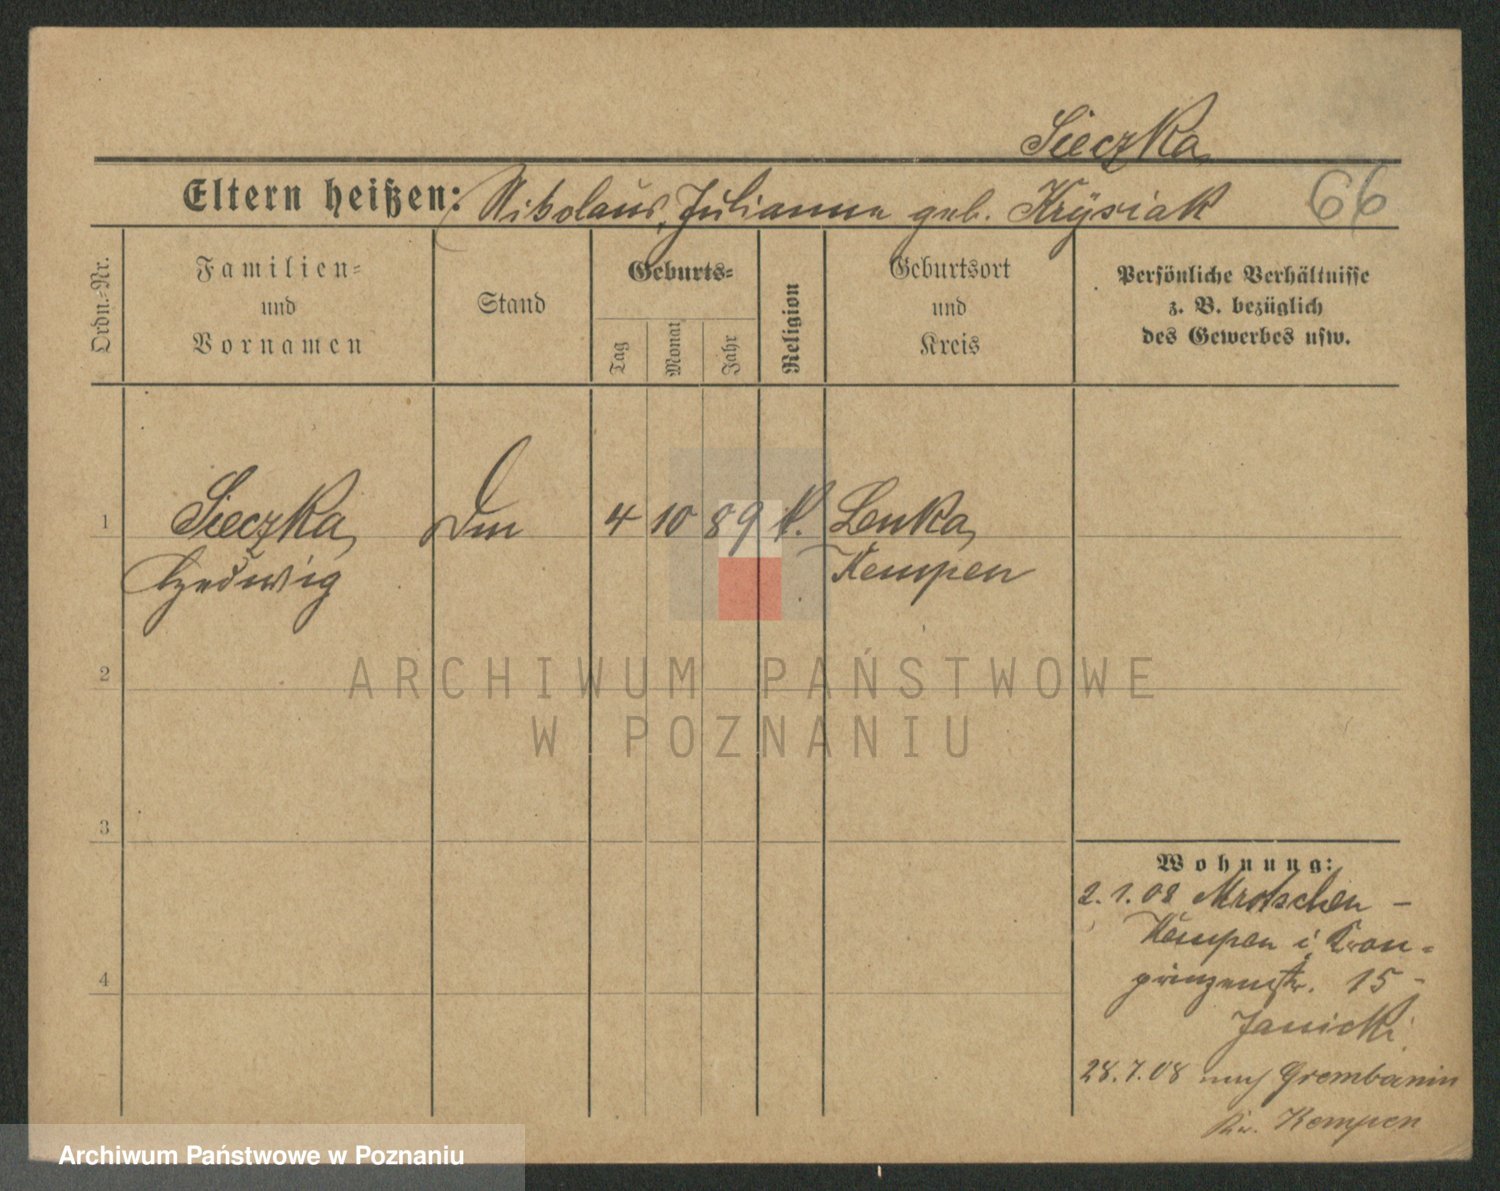 Sieczka
Eltern heißen: Nikolaus, Julianna geb. Krysiak
66
Ordn.-Nr.
Familien-
und
Vornamen
Stand
Geburts-
Tag
Monat
Jahr
Religion
Geburtsort
und
Kreis
Persönliche Verhältnisse
z. B. bezüglich
des Gewerbes usw.
1
Sieczka
Hedwig
4
10
89
k.
Lenka
Kempen
2
3
4
Wohnung:
2.1.08 Mrotschen -
Kempen i. Kron-
prinzenstr. 15 -
Janicki
28.7.08 nach Grembanin
Kr. Kempen
ARCHIWUM PAŃSTWOWE
W POZNANIU
Archiwum Państwowe w Poznaniu